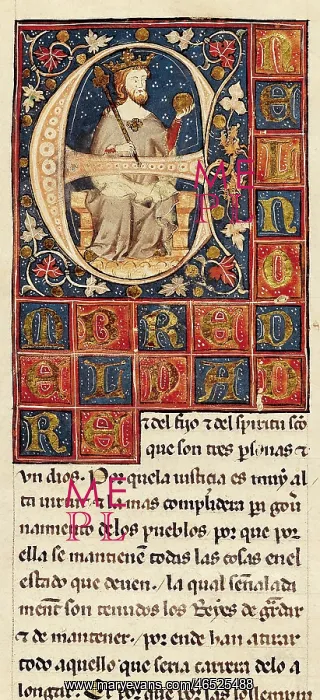 E
N
E
L
N
O
M B R E D
E L P A D
R E
⁊ del fijo ⁊ del spiritu sc̄o
que son tres psonas ⁊
vn dios. Por que la iusticia es muy al
ta ⁊ la mas complidera pa gou
namiento delos pueblos por que por
ella se mantienē todas las cosas enel
estado que deuen. la qual señalada
ment son tenudos los Reyes de gardar
⁊ de mantener. por ende han atirar
todo aquello que seria carrera delo a
longar. por que por las
ME
PL
ME
PL
www.maryevans.com/46525488